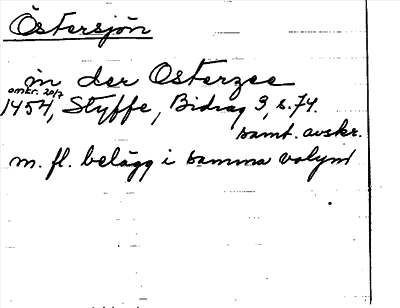 Östersjön
in der Osterzee
omkr. 20/7
1454, Styffe, Bidrag 3, s. 74.
samt. avskr.
m. fl. belägg i samma volym